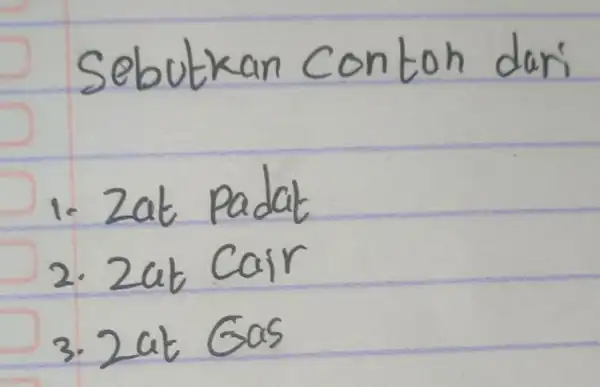 Sebutkan Contoh dari
1. Zat Padat
2. Zat Cair
3. Zat Gas